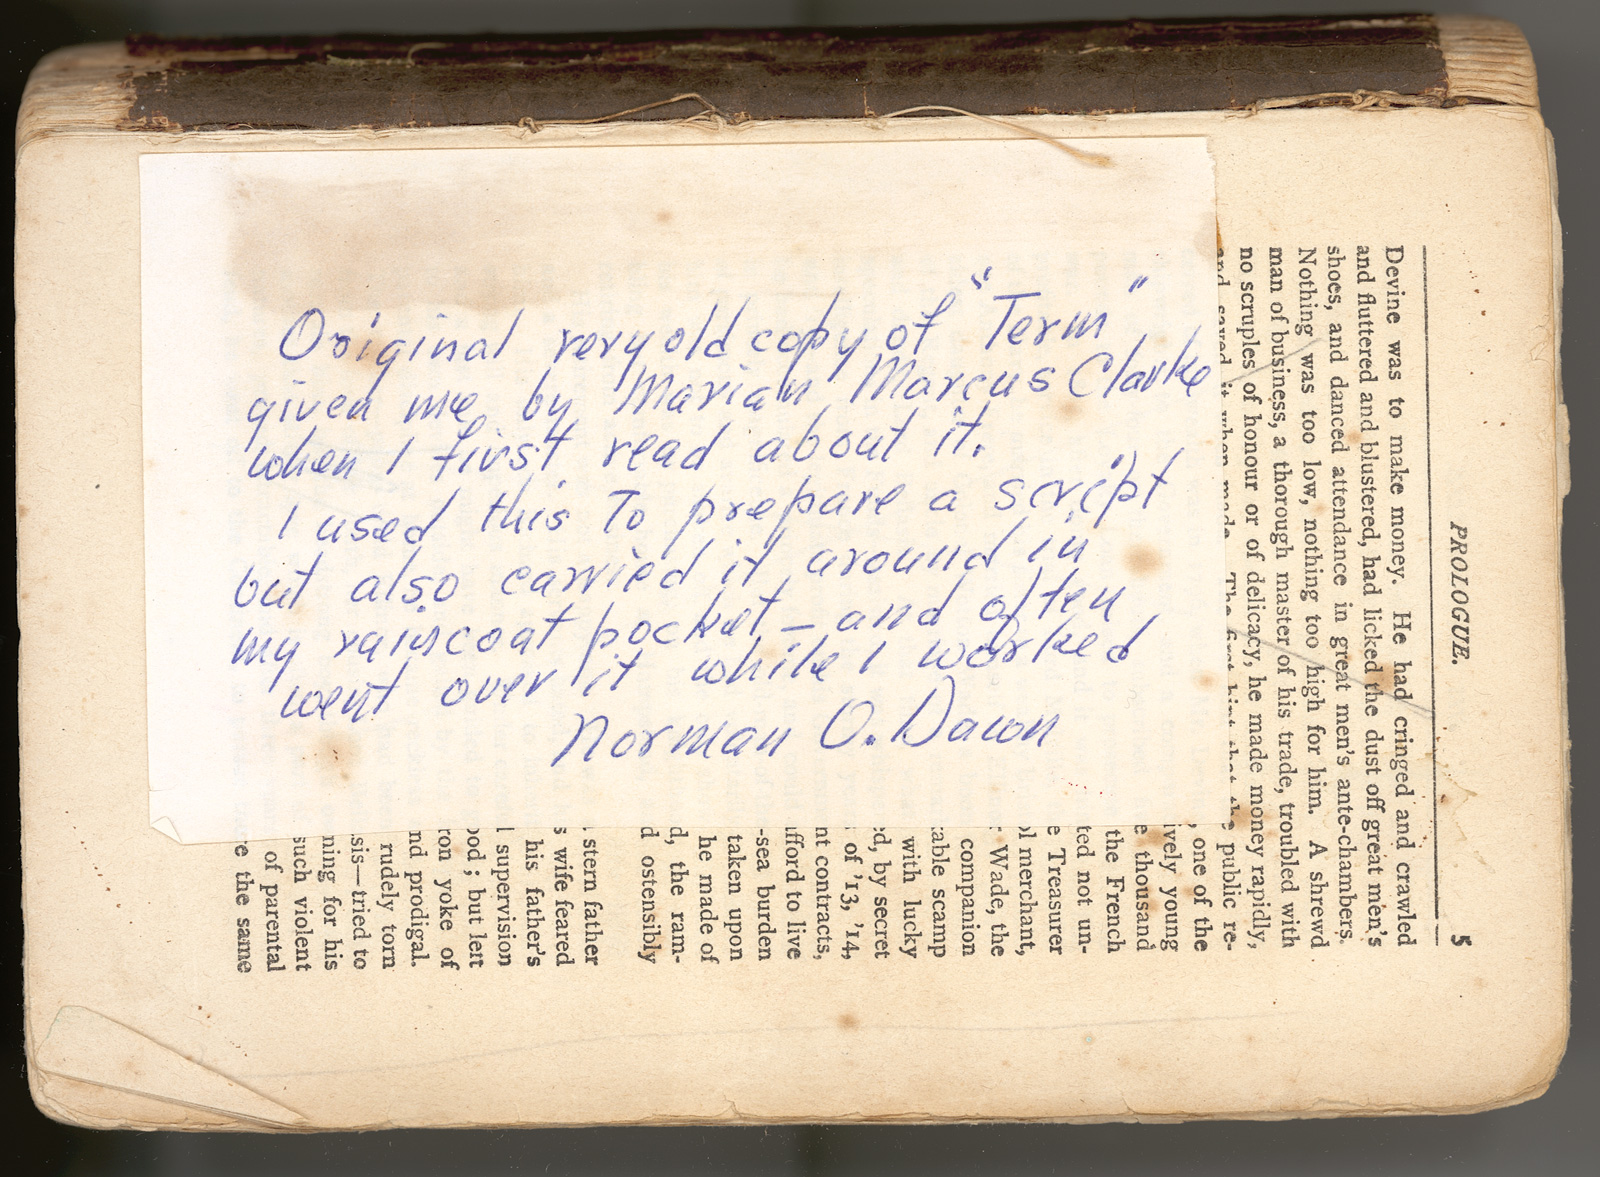 Original very old copy of "Term"
given me by Marian Marcus Clarke
when I first read about it.
I used this To prepare a script
but also carried it around in
my raincoat pocket – and often
went over it while I worked
Norman O. Dawn
PROLOGUE. 5
Devine was to make money. He had cringed and crawled
and fluttered and blustered, had licked the dust off great men's
shoes, and danced attendance in great men's ante-chambers.
Nothing was too low, nothing too high for him. A shrewd
man of business, a thorough master of his trade, troubled with
no scruples of honour or of delicacy, he made money rapidly,
and saved it when made. The first hint that the public re-
, one of the
ively young
e thousand
the French
ted not un-
e Treasurer
ol merchant,
Wade, the
companion
table scamp
with lucky
ed, by secret
of '13, '14,
nt contracts,
fford to live
-sea burden
taken upon
he made of
d, the ram-
d ostensibly
stern father
s wife feared
his father's
l supervision
ood; but left
ron yoke of
nd prodigal.
rudely torn
sis—tried to
ning for his
such violent
of parental
re the same